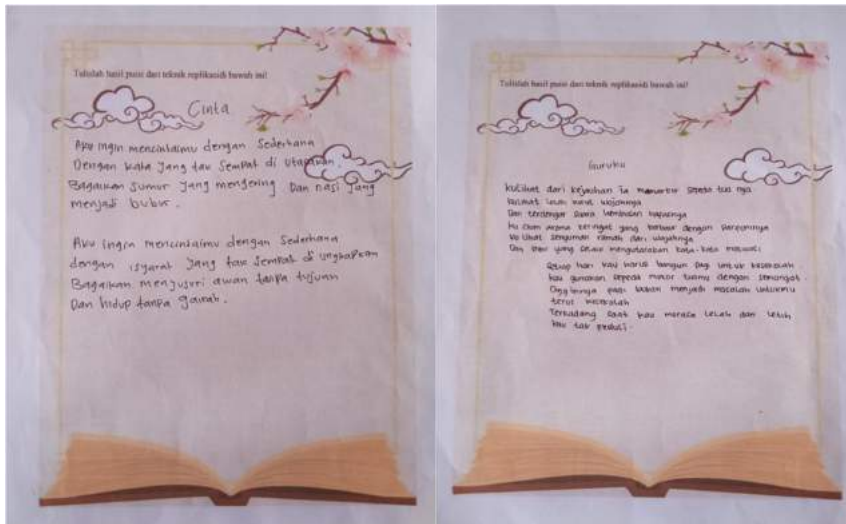 Tulislah hasil puisi dari teknik replikasidi bawah ini!
Cinta
Aku ingin mencintaimu dengan Sederhana
Dengan kata Yang tak Sempat di utapkan
Bagaikan Sumur Yang mengering Dan nasi Yang
menjadi bubur.
Aku ingin mencintaimu dengan Sederhana
dengan isyarat Yang tak Sempat di ungkapkan
Bagaikan menyusuri awan tanpa tujuan
Dan hidup tanpa gairah.
Tulislah hasil puisi dari teknik replikasidi bawah ini!
Guruku
kulihat dari kejauhan ia memarkir sepeda tua nya
kulihat lelah raut wajahnya
Dan terdengar suara hembusan napasnya
Ku cium aroma keringat yang berbaur dengan parfumnya
Ku lihat senyuman ramah dari wajahnya
Dan bibir yang selalu mengutarakan kata-kata motivasi
Setiap hari kau harus bangun pagi untuk kesekolah
kau gunakan sepeda motor tuamu dengan semangat.
Dinginnya pagi bukan menjadi masalah untukmu
terus kesekolah
Terkadang saat kau merasa lelah dan letih
kau tak peduli.